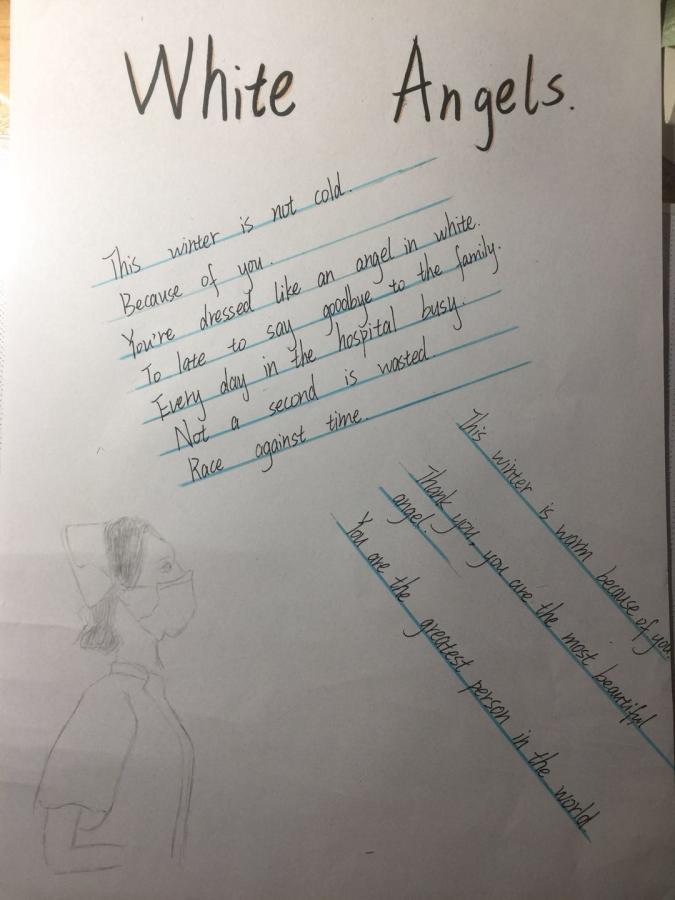 White Angels.
This winter is not cold.
Because of you.
You're dressed like an angel in white.
To late to say goodbye to the family.
Every day in the hospital busy.
Not a second is wasted.
Race against time.
This winter is warm because of you.
Thank you, you are the most beautiful
angel.
You are the greatest person in the world